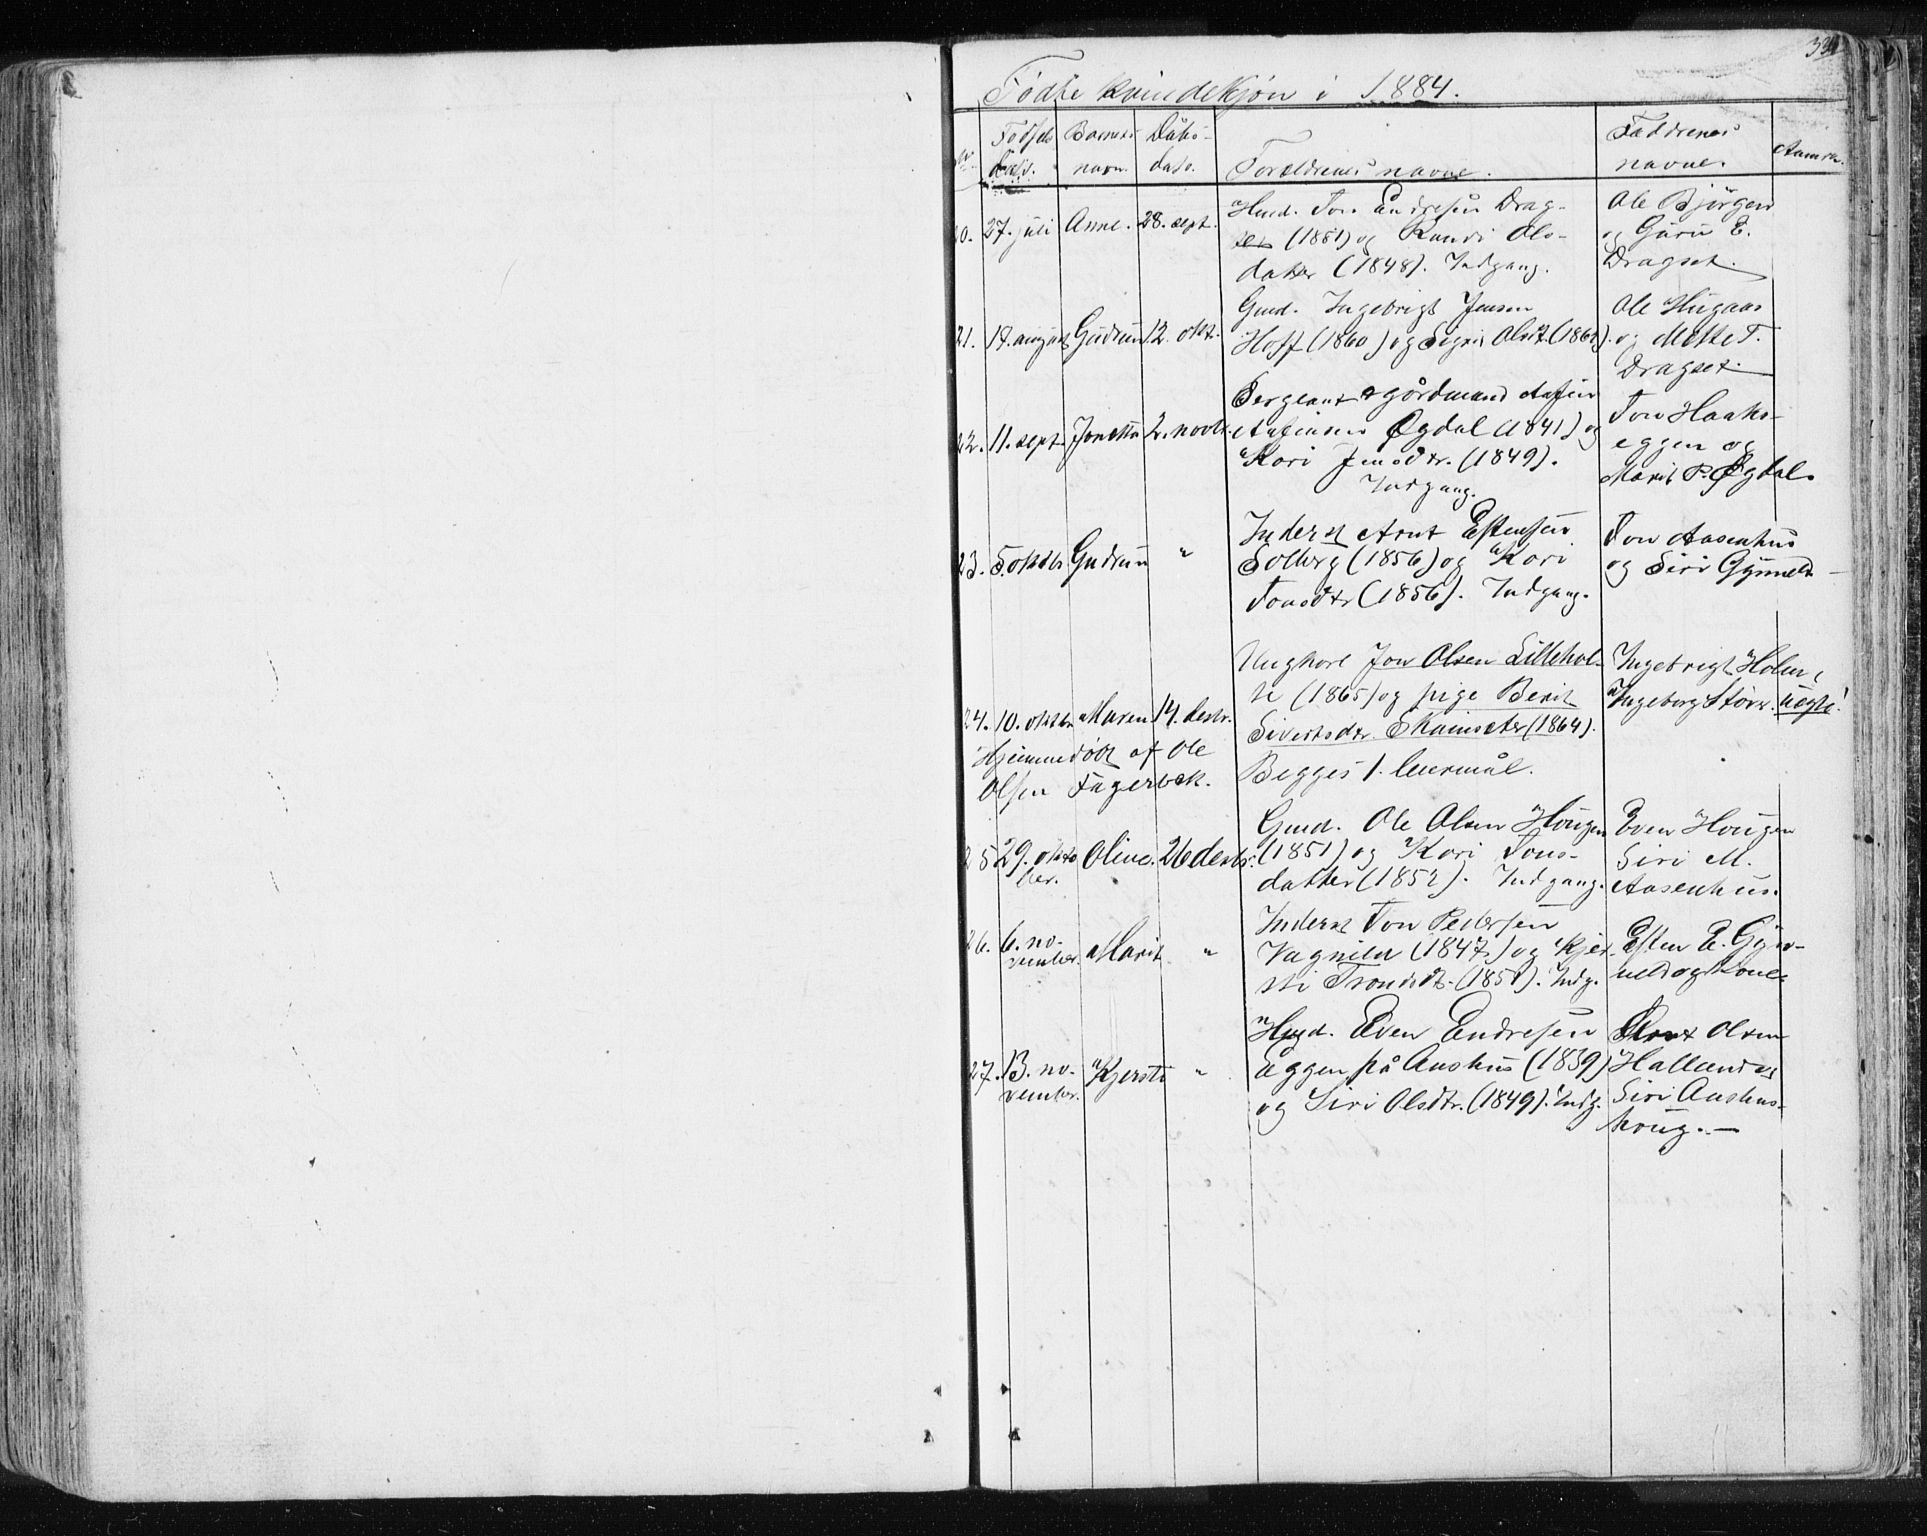 Fødte kvindekjøn i 1884.
Nr. Fødsels- dato. Barnets navn. Dåbs- dato. Forældrenes navne. Faddrenes navne. Anm.
20. 27. juli Anne. 28. sept. Husd. Jon Endresen Drag-
set (1851) og Randi Ols-
datter (1848). Indgang.
Ole Bjørgen
og Guru E.
Dragset.
21. 19. august Gudrun 12. okt. Gmd. Ingebrigt Jensen
Hoff (1860) og Sigri Olsdt. (1862).
Ole Hugaas
og Mette T.
Dragset.
22. 11. sept. Jonetta 2. novbr. Sergeant & gårdmand Anfin
Anfinsen Øgdal (1841) og
Kari Jensdtr. (1849).
Indgang.
Jon Haaks-
eggen og
Marit P. Øgdal.
23. 5. oktbr. Gudrun " Inderst Arnt Estensen
Solberg (1856) og Kari
Jonsdtr (1856). Indgang.
Jon Aasenhus
og Siri Gynneld
24. 10. oktbr. Maren 14. desbr. Ungkarl Jon Olsen Lillehol-
te (1865) og pige Berit
Sivertsdtr. Skainseter (1864).
Begges 1. leiermål.
Hjemmedøbt af Ole
Olsen Fagerbek.
Ingebrigt Holm,
Ingeborg Støre. uegte!
25 29. okto- ber. Oline. 26 desbr. Gmd. Ole Olsen Hougen
(1851) og Kari Jons-
datter (1852). Indgang.
Even Hougen
Siri M.
Aasenhus.
26. 6. no- vember. Marit " Inderst Jon Pedersen
Vagnild (1847) og Kjer-
sti Trondsdt. (1851). Indg.
Esten E. Gyn-
neld og kone
27. 13. no- vember. Kjersti " Husd. Even Endresen
Eggen på Aushus (1839)
og Siri Olsdtr. (1849). Indg.
Arnt Olsen
Halland og
Siri Aushus-
haug. —